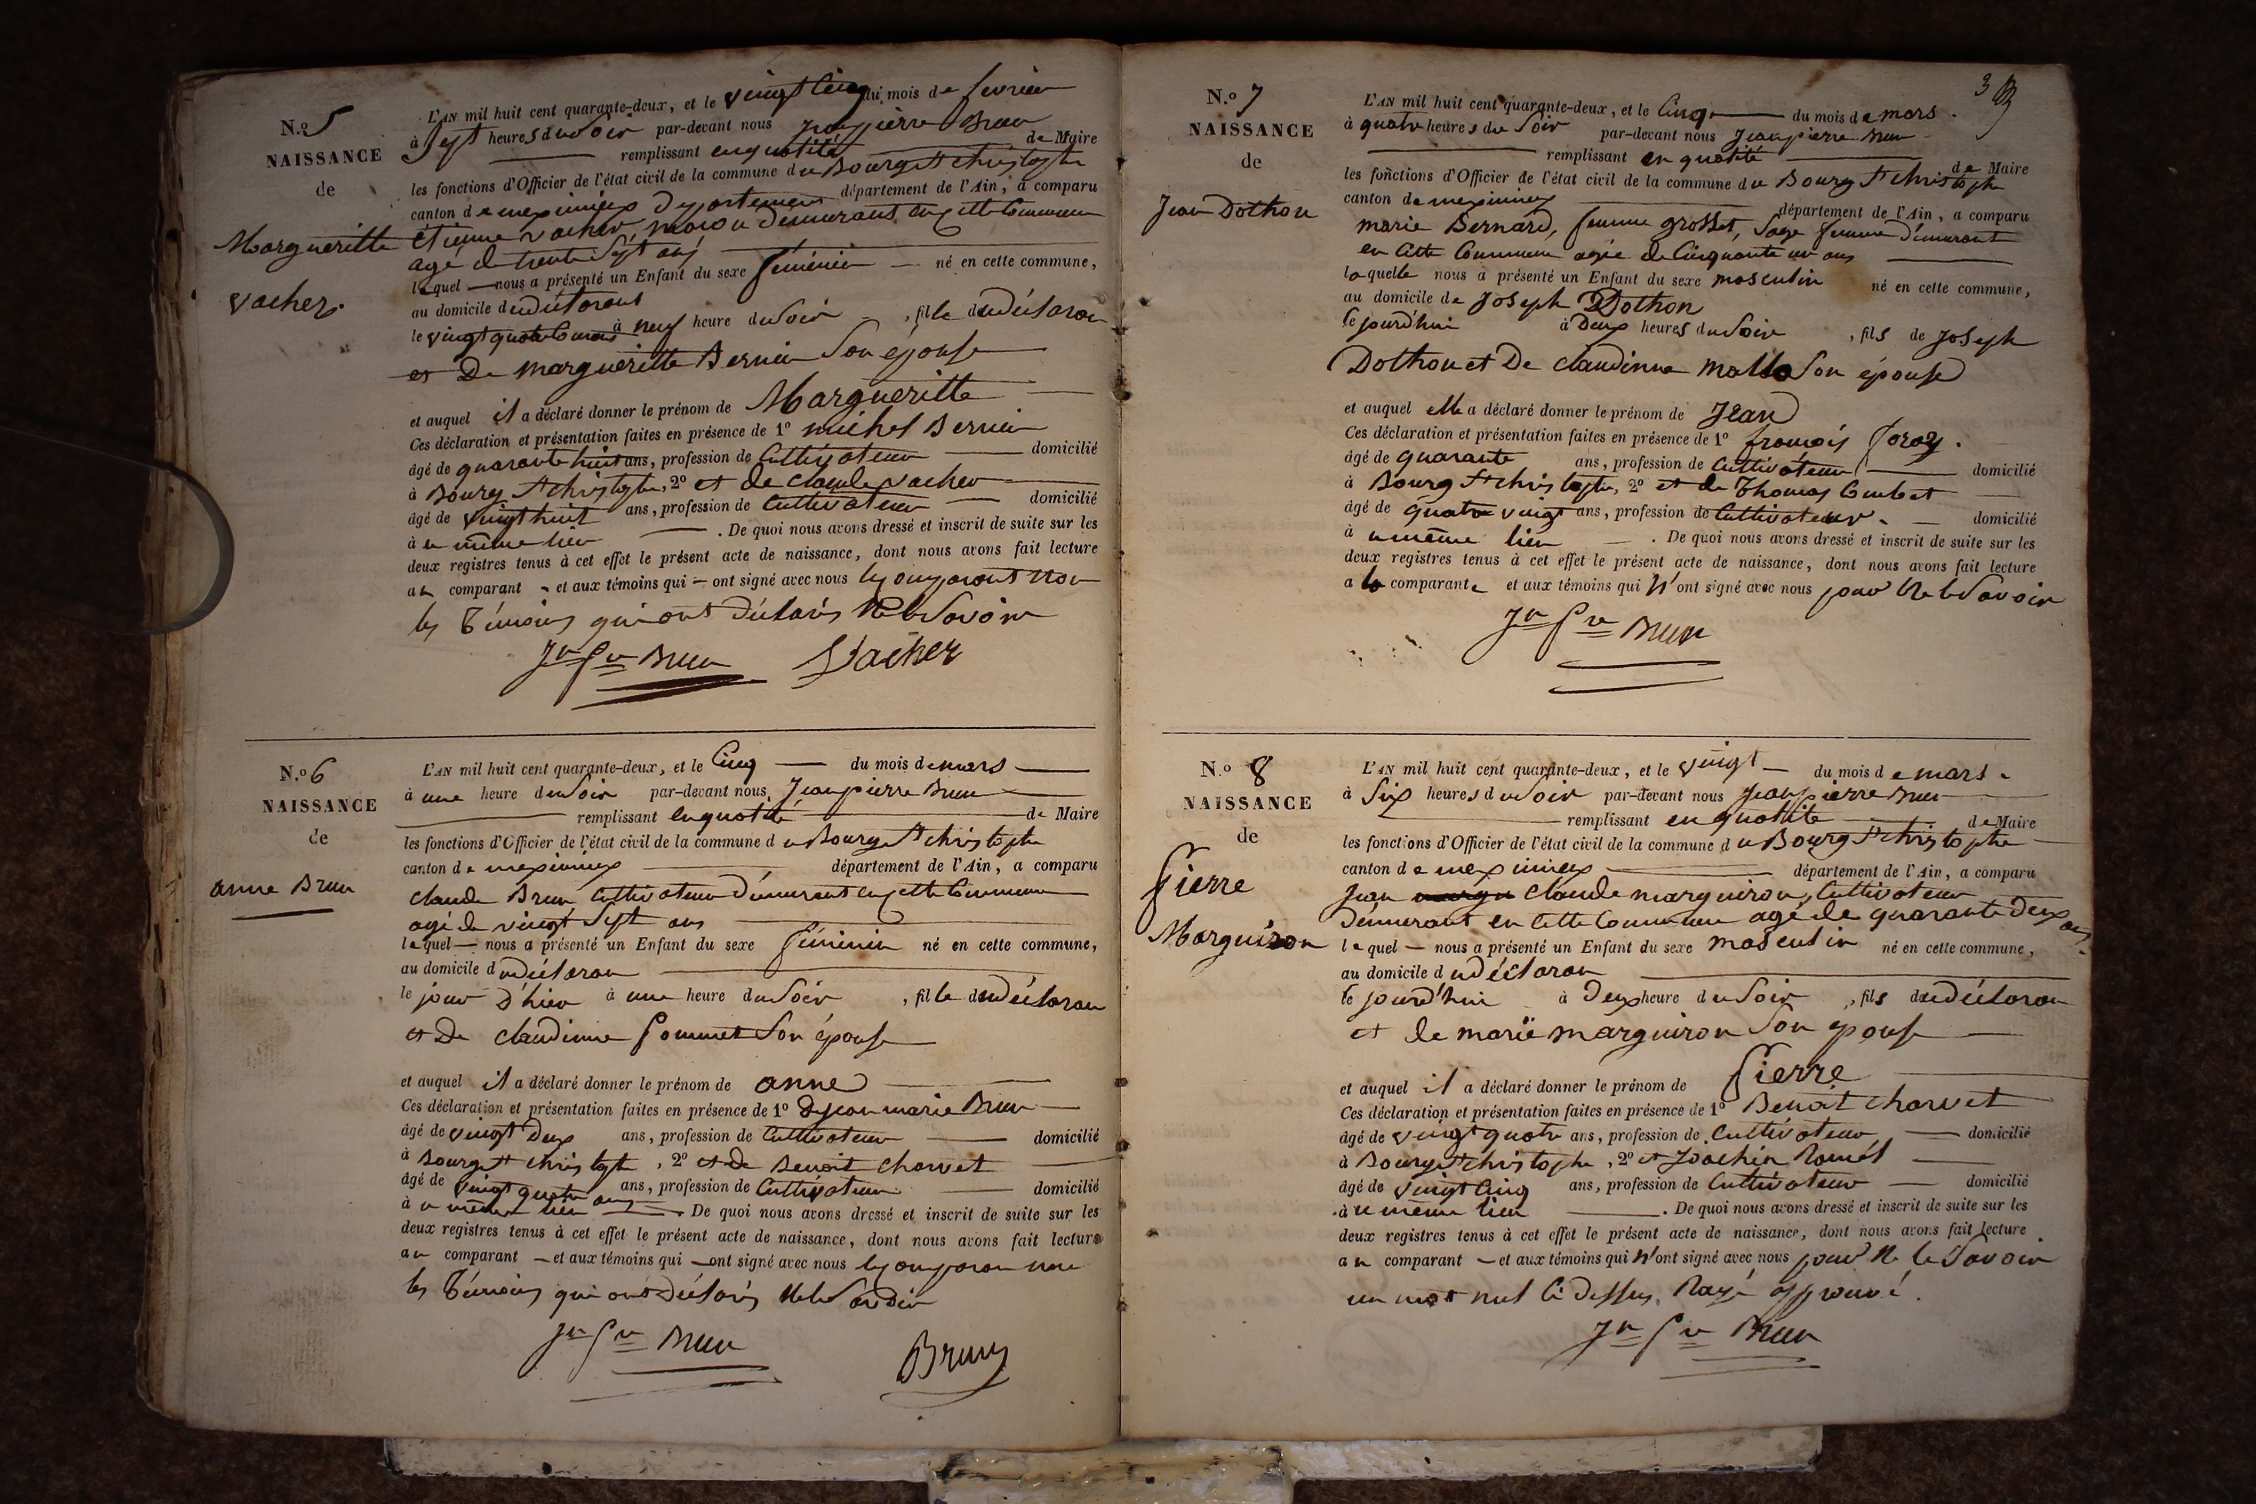 N.o 5
NAISSANCE
de
Margueritte
Vacher.
L'AN mil huit cent quarante-deux, et le vingt Cinq du mois de fevrier
à Sept heures du Soir par-devant nous Jean pierre Brun
remplissant en qualité de Maire
les fonctions d'Officier de l'état civil de la commune du Bourg St christophe
canton de meximieux Departement département de l'Ain, a comparu
étienne vacher, maçon demeurant en cette Commune
agé de trente Sept ans
lequel nous a présenté un Enfant du sexe féminin né en cette commune,
au domicile du déclarant
le vingt quatre Courant à neuf heure du Soir, fille du déclaran
et De margueritte Bernin Son épouse
et auquel il a déclaré donner le prénom de Margueritte
Ces déclaration et présentation faites en présence de 1o michel Bernin
âgé de quarante huit ans, profession de Cultivateur domicilié
à Bourg St christophe, 2o et de Claude vacher
âgé de vingt huit ans, profession de Cultivateur domicilié
à u même lieu. De quoi nous avons dressé et inscrit de suite sur les
deux registres tenus à cet effet le présent acte de naissance, dont nous avons fait lecture
au comparant et aux témoins qui ont signé avec nous le comparant non
les Témoins qui ont déclarés Ne le Savoir
Jn Pre Brun Vacher
N.o 6
NAISSANCE
de
anne Brun
L'AN mil huit cent quarante-deux, et le Cinq du mois de mars
à une heure du Soir par-devant nous Jean pierre Brun
remplissant en qualité de Maire
les fonctions d'Officier de l'état civil de la commune du Bourg St christophe
canton de meximieux département de l'Ain, a comparu
claude Brun Cultivateur Démeurant en cette Commune
agé de vingt Sept ans
lequel nous a présenté un Enfant du sexe féminin né en cette commune,
au domicile du déclaran
le jour D'hier à une heure du Soir, fille du déclaran
et De claudinne Pommet Son épouse
et auquel il a déclaré donner le prénom de anne
Ces déclaration et présentation faites en présence de 1o De jean marie Brun
âgé de vingt deux ans, profession de Cultivateur domicilié
à Bourg St christophe, 2o et De Benoit charvet
âgé de vingt quatre ans ans, profession de Cultivateur domicilié
à u même lieu. De quoi nous avons dressé et inscrit de suite sur les
deux registres tenus à cet effet le présent acte de naissance, dont nous avons fait lecture
au comparant et aux témoins qui ont signé avec nous le comparan non
les Témoins qui ont déclarés Ne le Savoir
Jn Pre Brun Brun
3
N.o 7
NAISSANCE
de
Jean Dothon
L'AN mil huit cent quarante-deux, et le Cinq du mois de mars.
à quatre heures du Soir par-devant nous Jean pierre Brun
remplissant en qualité de Maire
les fonctions d'Officier de l'état civil de la commune du Bourg St christophe
canton de meximieux département de l'Ain, a comparu
marie Bernard, femme grosset, Sage femme démeurant
en Cette Commune agée de Cinquante un ans
laquelle nous a présenté un Enfant du sexe masculin né en cette commune,
au domicile de Joseph Dothon
le jourd'hui à Deux heures du Soir, fils de Joseph
Dothon et De claudinne malla Son épouse
et auquel elle a déclaré donner le prénom de Jean
Ces déclaration et présentation faites en présence de 1o françois foray.
âgé de quarante ans, profession de Cultivateur domicilié
à Bourg St christophe, 2o et de Thomas Combet
âgé de quatre vingt ans, profession de Cultivateur. domicilié
à u même lieu. De quoi nous avons dressé et inscrit de suite sur les
deux registres tenus à cet effet le présent acte de naissance, dont nous avons fait lecture
a la comparante et aux témoins qui N'ont signé avec nous pour Ne le Savoir
Jn Pre Brun
N.o 8
NAISSANCE
de
Pierre
Marguiron
L'AN mil huit cent quarante-deux, et le vingt du mois de mars.
à Six heures du Soir par-devant nous Jean pierre Brun
remplissant en qualité de Maire
les fonctions d'Officier de l'état civil de la commune du Bourg St christophe
canton de meximieux département de l'Ain, a comparu
Jean claude marguiron, Cultivateur
Démeurant en Cette Commune agé de quarante Deux ans
lequel nous a présenté un Enfant du sexe masculin né en cette commune,
au domicile du déclaran
le jourd'hui à Deux heure du Soir, fils du déclaran
et de marie marguiron Son épouse
et auquel il a déclaré donner le prénom de Pierre
Ces déclaration et présentation faites en présence de 1o Benoit charvet
âgé de vingt quatre ans, profession de Cultivateur domicilié
à Bourg St christophe, 2o et Joachin
âgé de vingt Cinq ans, profession de Cultivateur domicilié
à u même lieu. De quoi nous avons dressé et inscrit de suite sur les
deux registres tenus à cet effet le présent acte de naissance, dont nous avons fait lecture
au comparant et aux témoins qui N'ont signé avec nous pour Ne le Savoir
un mot nul Ci dessus Rayé approuvé.
Jn Pre Brun